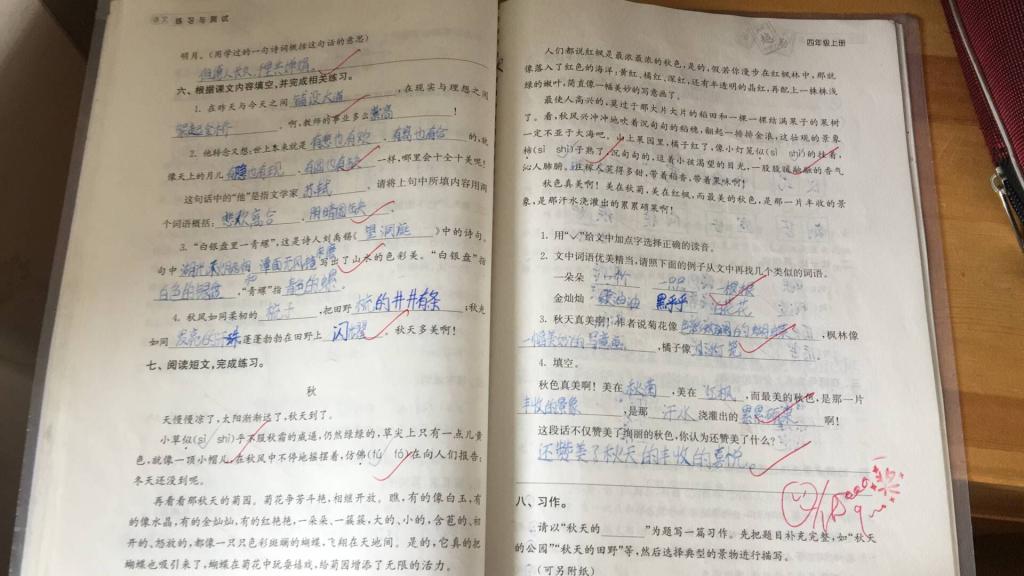 语文 练习与测试
明月。(用学过的一句诗词概括这句话的意思)
但愿人长久,
六、根据课文内容填空,并完成相关练习。
1. 在昨天与今天之间 铺设大道 ,在现实与理想之间
架起金桥 。啊,教师的事业多么 崇高 !
2. 他转念又想:世上本来就是 有悲也有欢、有离也有合 的,就
像天上的月儿 也有 、 有圆也有缺 一样,哪里会十全十美呢!
这句话中的“他”是指文学家 苏轼 。请将上句中所填内容用两
个词语概括: 悲欢离合 、 阴晴圆缺 。
3. “白银盘里一青螺”,这是诗人刘禹锡《 望洞庭 》中的诗句。
句中 写出了山水的色彩美。“白银盘”指
白色的 ,“青螺”指 青色的螺 。
4. 秋风如同柔韧的 梳子 ,把田野 梳的井井有条 ;秋光
如同 发亮的 珠 蓬蓬勃勃在田野上 闪耀 。秋天多美啊!
七、阅读短文,完成练习。
秋
天慢慢凉了,太阳渐渐远了,秋天到了。
小草似(sì shì)乎不服秋霜的威逼,仍然绿绿的,草尖上只有一点儿黄
色,就像一顶小帽儿,在秋风中不停地摇摆着,仿佛(fú fó)在向人们报告:
冬天还没到呢。
再看看那秋天的菊园。菊花争芳斗艳,相继开放。瞧,有的像白玉,有
的像水晶,有的金灿灿,有的红艳艳,一朵朵、一簇簇,大的、小的,含苞的、初
开的、怒放的,都像一只只色彩斑斓的蝴蝶,飞翔在天地间。是的,它真的把
蝴蝶也吸引来了,蝴蝶在菊花中玩耍嬉戏,给菊园增添了无限的活力。
四年级上册
人们都说红枫是最浓最浓的秋色,是的,假若你漫步在红枫林中,那就
像落入了红色的海洋:黄红、橘红、深红,还有半透明的晶红,再配上一株株浅
绿的椒叶,简直像一幅美妙的写意画了。
最使人高兴的,莫过于那大片大片的稻田和一棵一棵结满果子的果树
了。看,秋风兴冲冲地吹着沉甸甸的稻穗,翻起一排排金浪,这壮观的景象
一定不亚于大海吧。山上果园里,橘子红了,像小灯笼似(sì shì)的挂着,
柿(sì shì)子熟了,沉甸甸的,逗着小孩渴望的目光,一股股暖融融的香气
沁人肺腑,让人觉得多甜,带着稻香,带着果味啊!
秋色真美啊!美在秋菊,美在红枫,而最美的秋色,是那一片丰收的景
象,是那汗水浇灌出的累累硕果啊!
1. 用“✓”给文中加点字选择正确的读音。
2. 文中词语优美精当,请照下面的例子从文中再找几个类似的词语。
一朵朵
金灿灿 绿油油 黑乎乎
3. 秋天真美啊!作者说菊花像 ,枫林像
一幅美妙的写意画 ,橘子像 小灯笼 。
4. 填空。
秋色真美啊!美在 秋菊 ,美在 红枫 ,而最美的秋色,是那一片
丰收的景象 ,是那 汗水 浇灌出的 累累硕果 啊!
这段话不仅赞美了绚丽的秋色,你认为还赞美了什么?
还赞美了秋天的丰收的喜悦。
八、习作。
请以“秋天的 ”为题写一篇习作。先把题目补充完整,如“秋天
的公园”“秋天的田野”等,然后选择典型的景物进行描写。
(可另附纸)